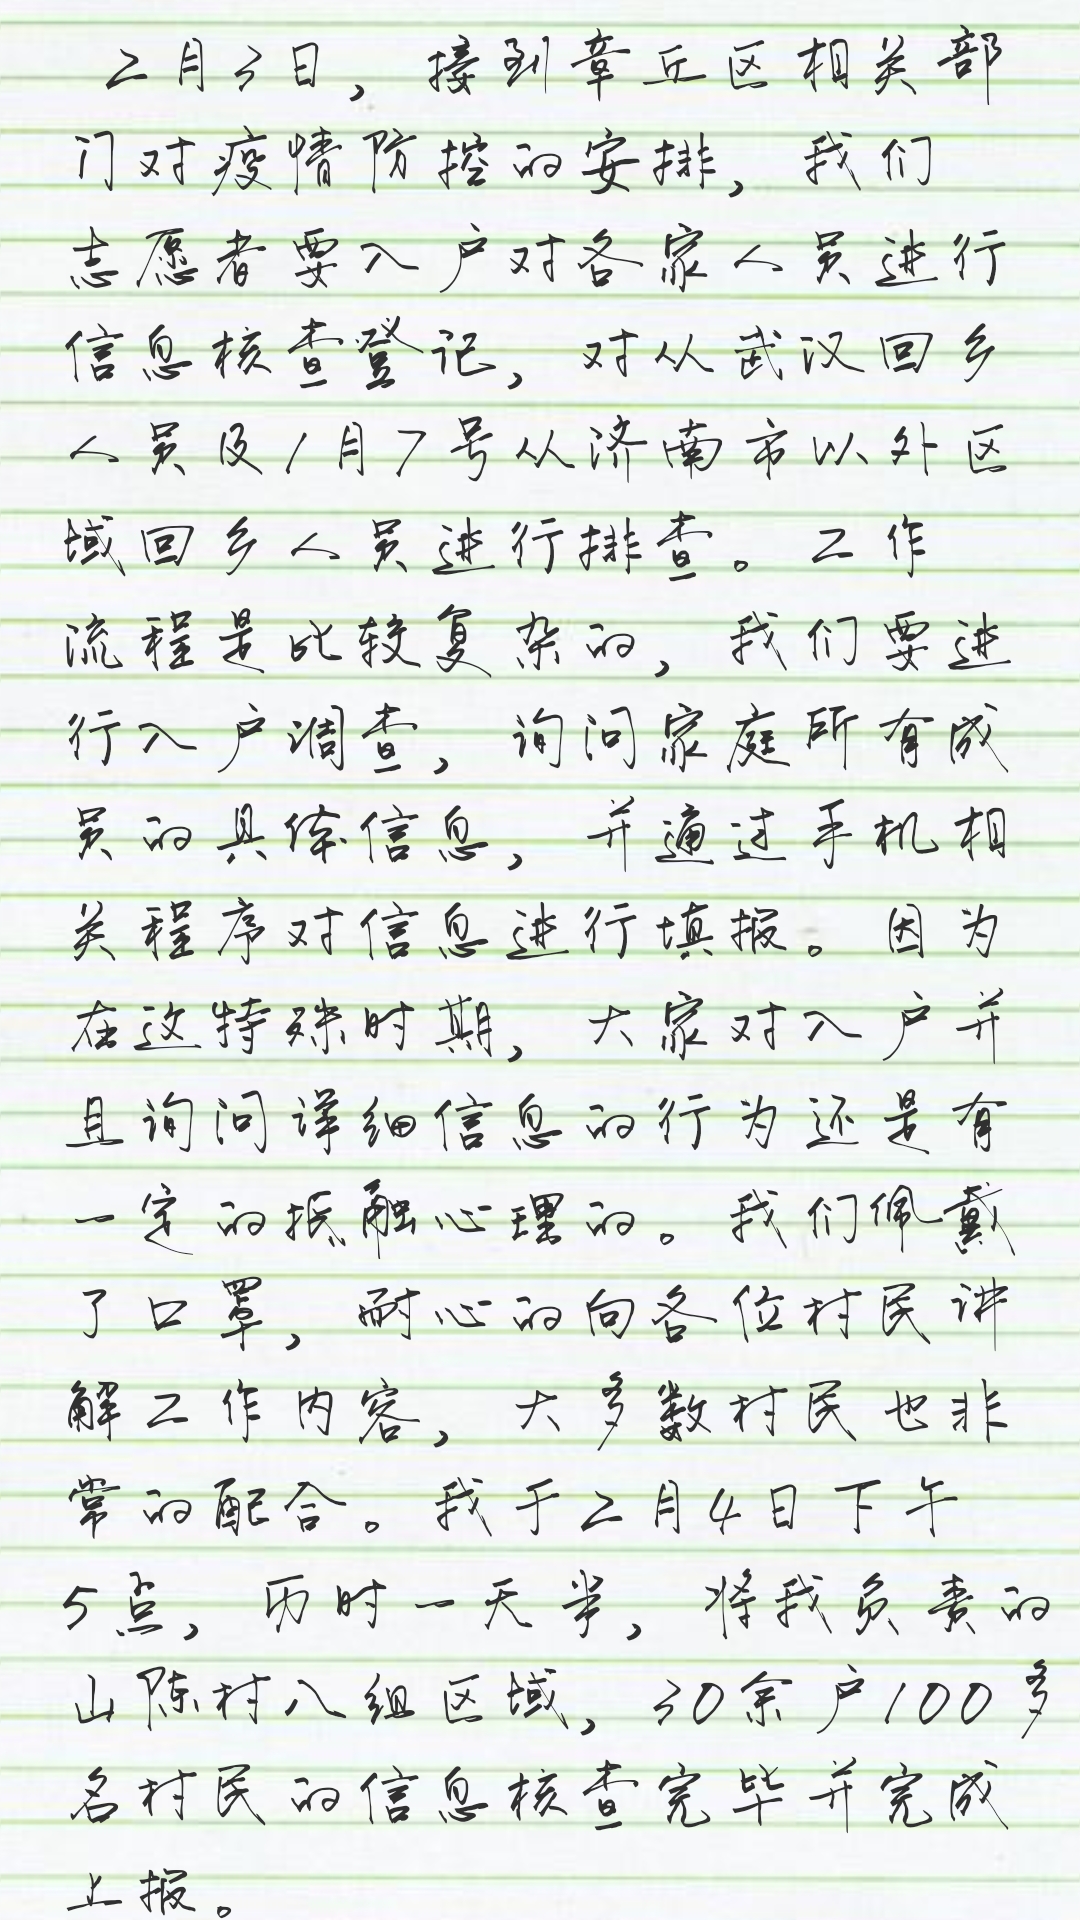 2月3日，接到章丘区相关部
门对疫情防控的安排，我们
志愿者要入户对各家人员进行
信息核查登记，对从武汉回乡
人员及1月7号从济南市以外区
域回乡人员进行排查。工作
流程是比较复杂的，我们要进
行入户调查，询问家庭所有成
员的具体信息，并通过手机相
关程序对信息进行填报。因为
在这特殊时期，大家对入户并
且询问详细信息的行为还是有
一定的抵触心理的。我们佩戴
了口罩，耐心的向各位村民讲
解工作内容，大多数村民也非
常的配合。我于2月4日下午
5点，历时一天半，将我负责的
山陈村八组区域，30余户100多
名村民的信息核查完毕并完成
上报。